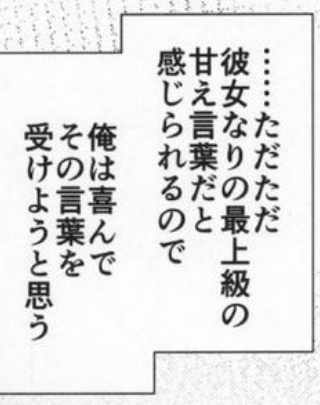 ……ただただ
彼女なりの最上級の
甘え言葉だと
感じられるので
俺は喜んで
その言葉を
受けようと思う